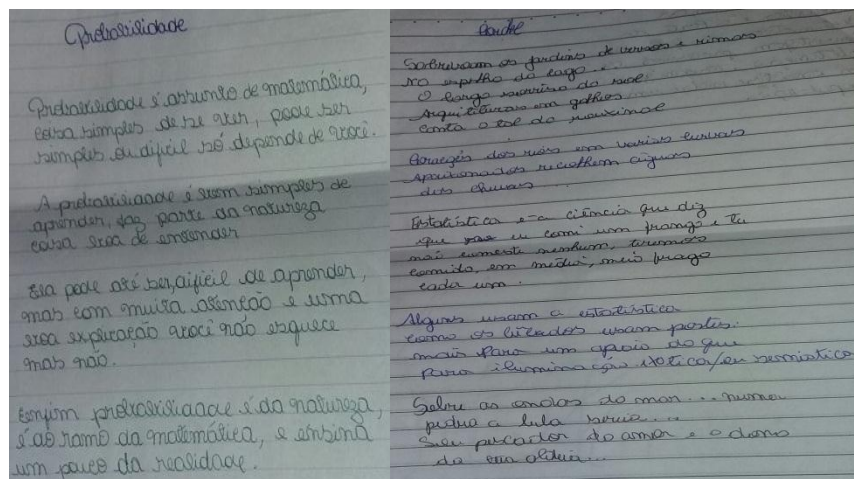 Probabilidade
Probabilidade é assunto de matemática,
coisa simples de se ver, pode ser
simples ou difícil só depende de você.
A probabilidade é bem simples de
aprender, faz parte da natureza
coisa boa de entender
Ela pode até ser, dificil de aprender,
mas com muita atenção e uma
boa explicação você não esquece
mas não.
Enfim probabilidade é da natureza,
é do ramo da matemática, e ensina
um pouco da realidade.
os jardins de versos e rimas
no espelho do lago...
O largo sorriso do sol
em galhos
canta o sol do rouxinol
dos rios em varias curvas
Apaixonados recolhem
das chuvas...
Estatística e a ciência que diz
que eu comi um frango e tu
não comeste nenhum, teremos
comido, em média, meio frago
cada um.
Alguns usam a estatística
como os bêbados usam postes:
mais para um apoio do que
para iluminação
Sobre as ondas do mar... numa
pedra a bela sereia...
Seu pescador do amor e o dono
da sua aldeia...